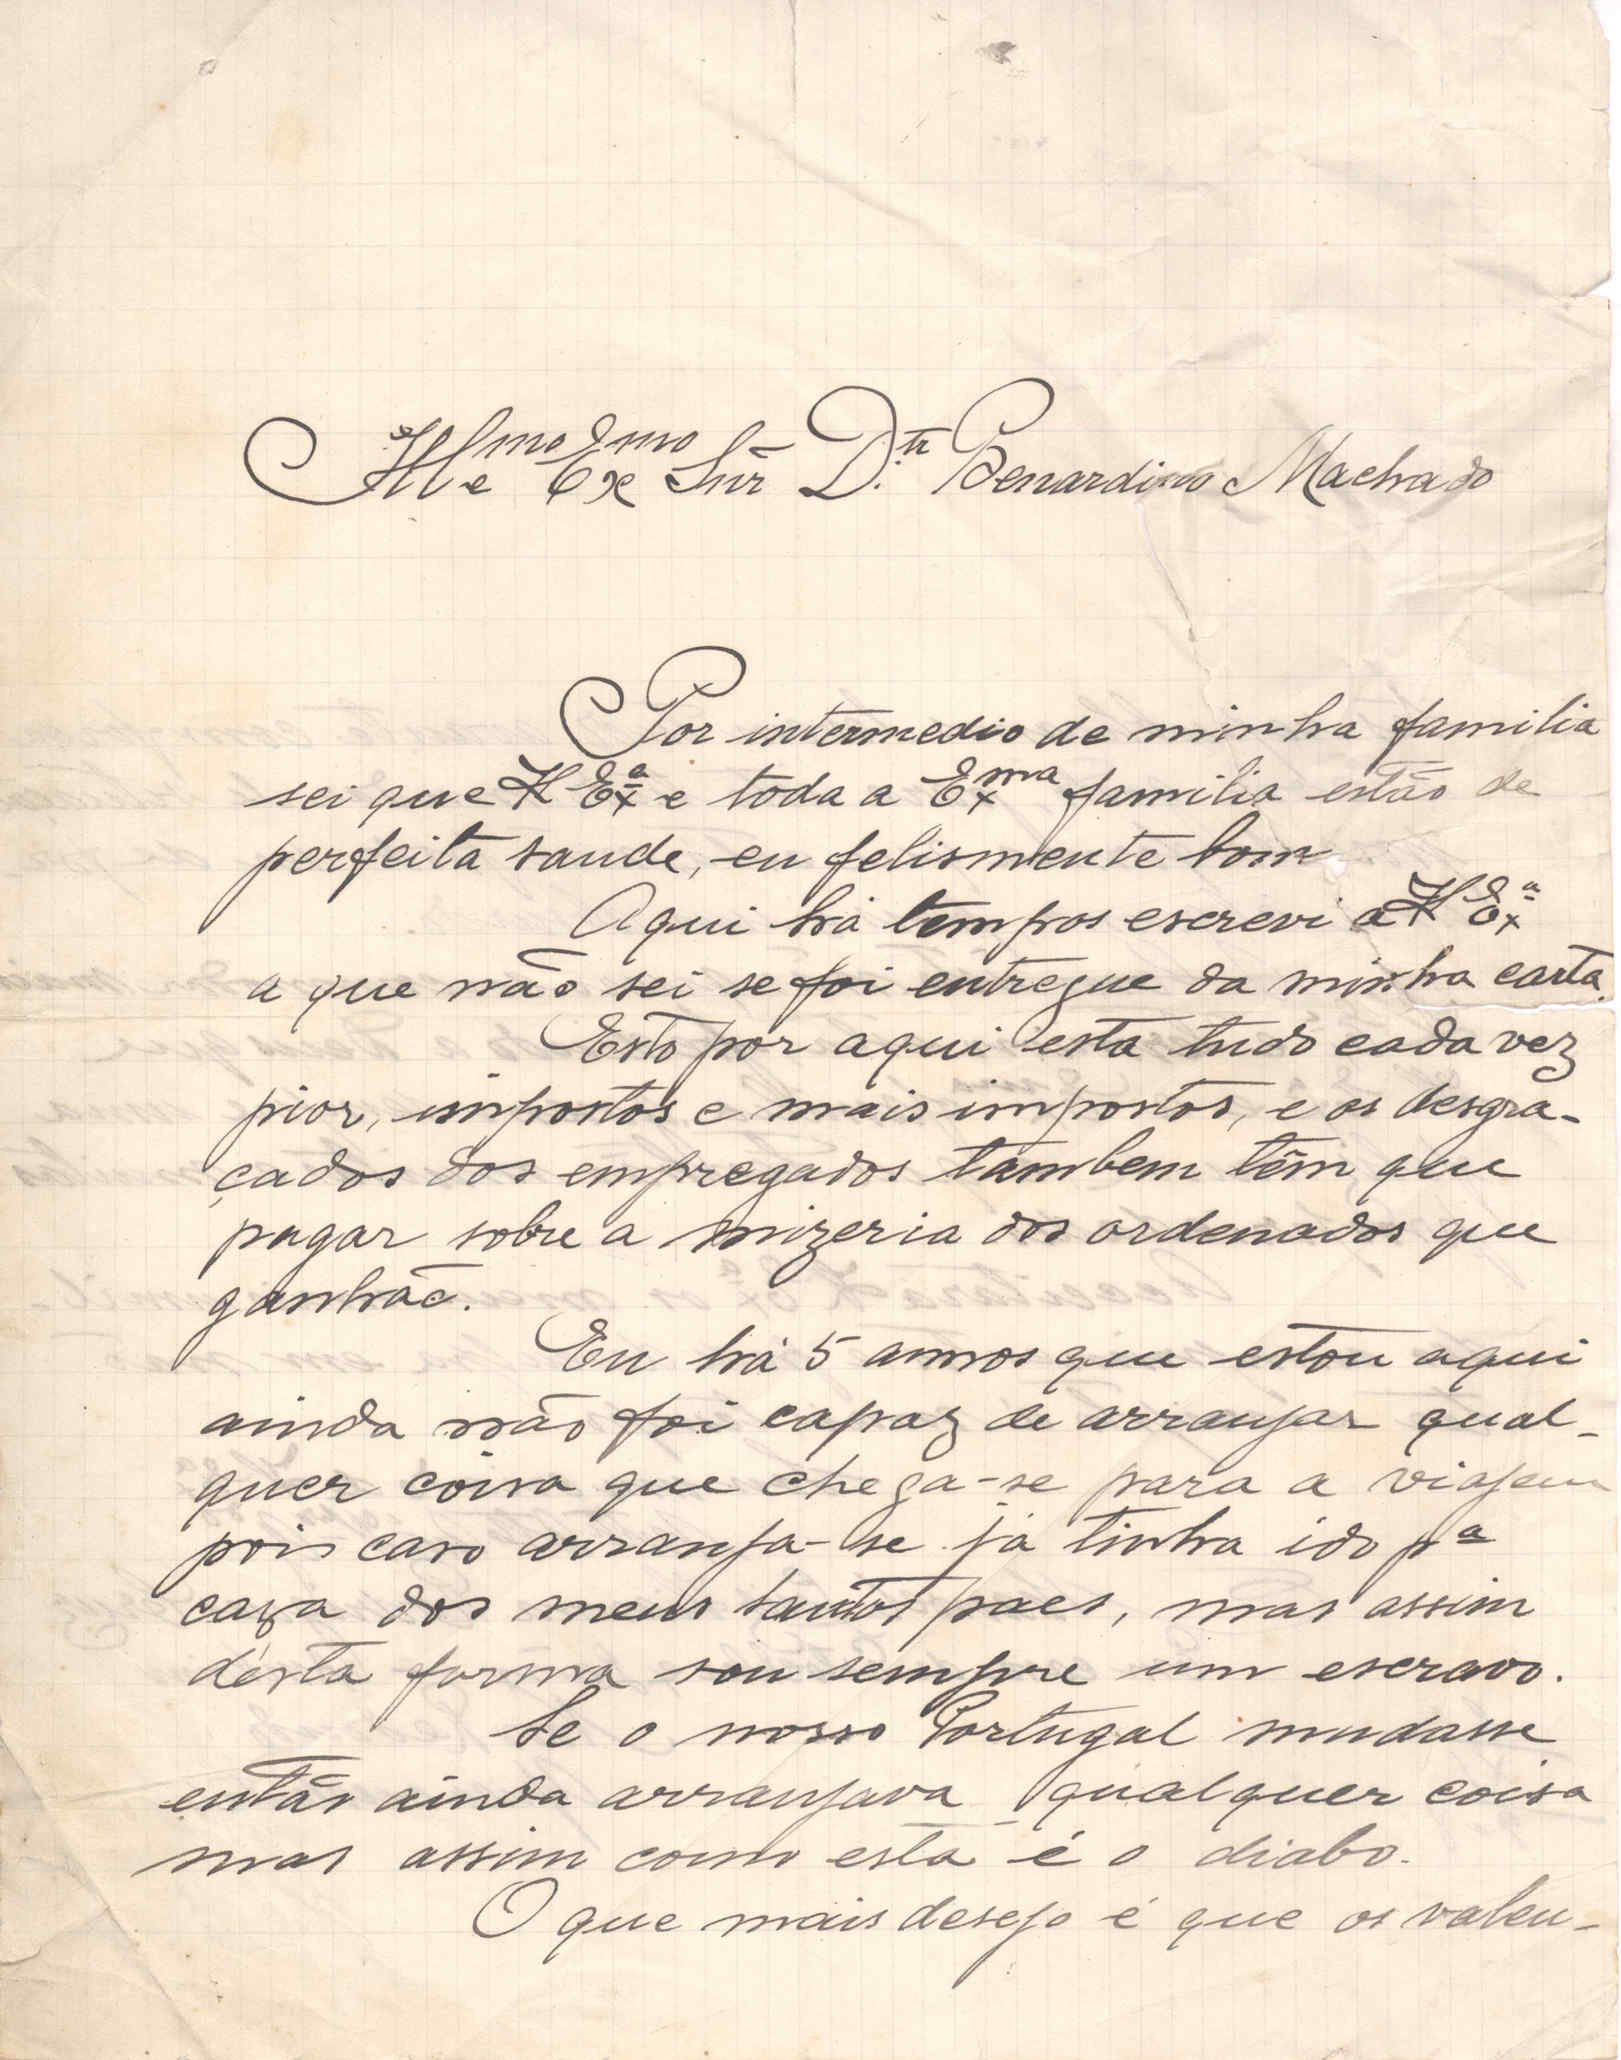 Illmo e Exmo Snr D.tr Benardino Machado
Por intermedio de minha familia
sei que V Exª e toda a Exma familia estão de
perfeita saude, eu felismente bom
Aqui há tempos escrevi a V Exª
a que não sei se foi entregue da minha carta.
Esto por aqui está tudo cada vez
pior, impostos e mais impostos, e os desgra-
çados dos empregados tambem têm que
pagar sobre a mizeria dos ordenados que
ganhão.
Eu há 5 annos que estou aqui
ainda não foi capaz de arranjar qual-
quer coisa que chega-se para a viajem
pois caso arranja-se já tinha ido pª
caza dos meus santos paes, mas assim
désta forma sou sempre um escravo.
Se o nosso Portugal mudasse
então ainda arranjava qualquer coisa
mas assim como está é o diabo.
O que mais desejo é que os valen-